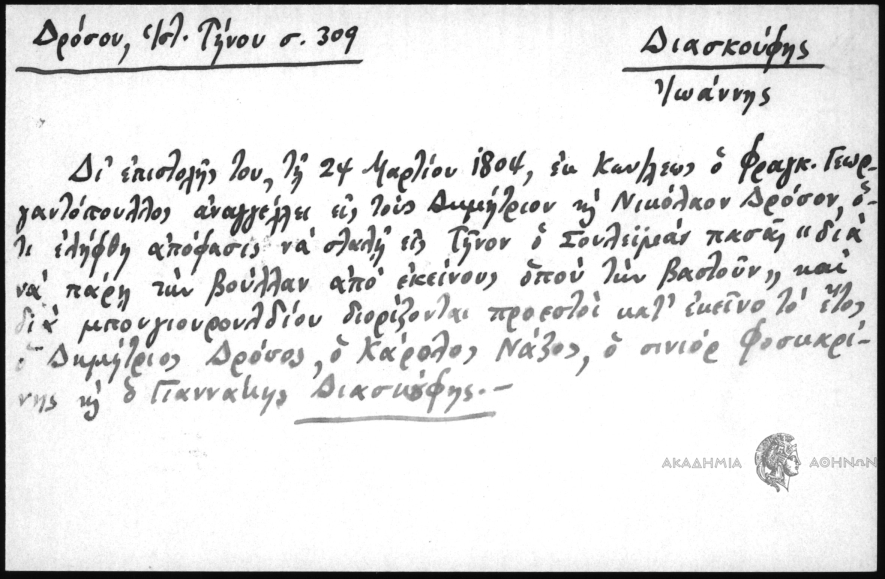 Δρόσου, Ἱστ. Τήνου σ. 309
Διασκούφης
Ἰωάννης
Δι' ἐπιστολῆς του, τῇ 24 Μαρτίου 1804, ἐκ Κων/λεως ὁ Φραγκ. Γεωρ-
γαντόπουλλος ἀναγγέλλει εἰς τοὺς Δημήτριον κ̀ Νικόλαον Δρόσον, ὅ-
τι ἐλήφθη ἀπόφασις νὰ σταλῇ εἰς Τῆνον ὁ Σουλεϊμὰν πασᾶς "διὰ
νὰ πάρῃ τὴν βούλλαν ἀπὸ ἐκείνους ὅπου τὴν βαστοῦν" καὶ
διὰ μπουγιουρουλδίου διορίζονται προεστοὶ κατ' ἐκεῖνο τὸ ἔτος
ὁ Δημήτριος Δρόσος, ὁ Κάρολος Νάζος, ὁ σινιὸρ Φοσκαρί-
νης κ̀ ὁ Γιαννάκης Διασκούφης.-
ΑΚΑΔΗΜΙΑ ΑΘΗΝΩΝ